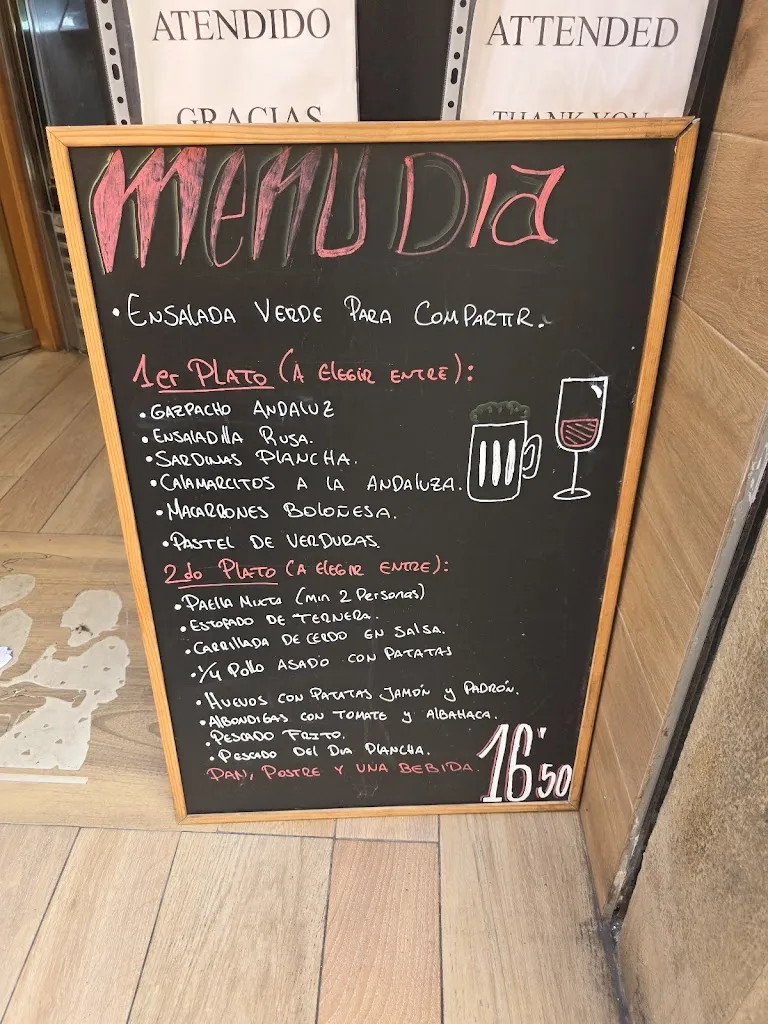 ATENDIDO
GRACIAS
ATTENDED
THANK YOU
MENU DIA
• ENSALADA VERDE PARA COMPARTIR.
1er PLATO (A ELEGIR ENTRE):
• GAZPACHO ANDALUZ
• ENSALADILLA RUSA.
• SARDINAS PLANCHA.
• CALAMARCITOS A LA ANDALUZA.
• MACARRONES BOLOÑESA.
• PASTEL DE VERDURAS.
2do PLATO (A ELEGIR ENTRE):
• PAELLA MIXTA (min 2 Personas)
• ESTOFADO DE TERNERA.
• CARRILLADA DE CERDO EN SALSA.
• 1/4 POLLO ASADO CON PATATAS
• HUEVOS CON PATATAS JAMÓN Y PADRÓN.
• ALBONDIGAS CON TOMATE Y ALBAHACA.
• PESCADO FRITO.
• PESCADO DEL DIA PLANCHA.
PAN, POSTRE Y UNA BEBIDA. 16'50